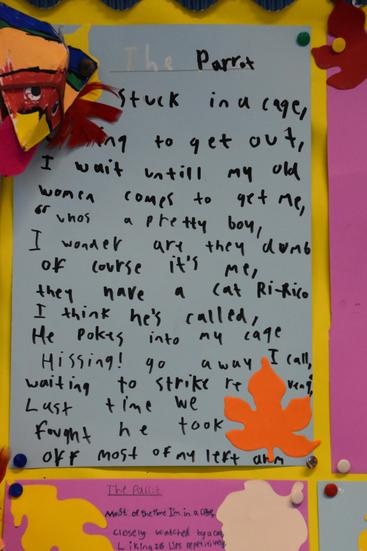 The Parrot
Stuck in a cage,
ng to get out,
I wait untill my old
women comes to get me,
“ whos a pretty boy,
I wonder are they dumb
of course it's me,
they have a cat Ri-Rico
I think he's called,
He Pokes into my cage
Hissing! go away I call,
waiting to strike re veng,
Last time we
fought he took
off most of my left arm
The Parrot
Most of the time I'm in a cage,
closely watched by a cat,